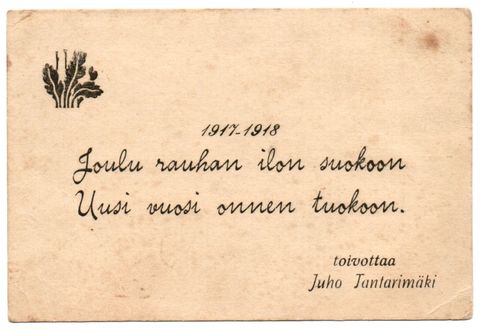 1917-1918
Joulu rauhan ilon suokoon
Uusi vuosi onnen tuokoon.
toivottaa
Juho Tantarimäki